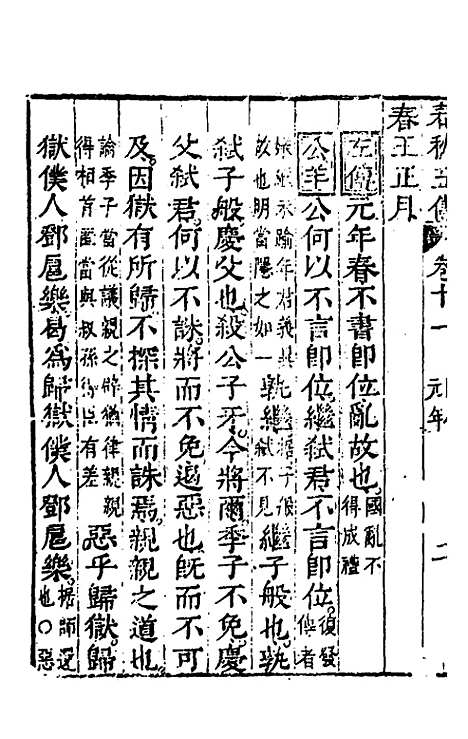 春秋五傳 卷十一 元年 二
春王正月
左傳 元年春不書即位亂故也 國亂不得成禮
公羊 公何以不言即位繼弒君不言即位 復發傳者
嫌繼未踰年君義異故也明當隱之如一 孰繼 據子般弒不見 繼子般也孰
弒子般慶父也殺公子牙今將爾季子不免慶
父弒君何以不誅將而不免遏惡也既而不可
及因獄有所歸不探其情而誅焉親親之道也
論季子當從議親之辟猶律親親得相首匿當與叔孫得臣有差 惡乎歸獄歸
獄僕人鄧扈樂曷為歸獄僕人鄧扈樂 據師還也○惡